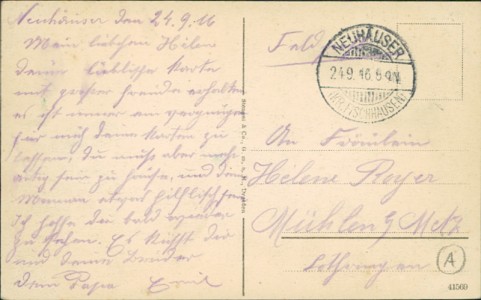 Neuhäuser den 24.9.16
Mein liebchen Helen
Deine liebliche Karte
mit großer Freude erhalten
es ist immer ein vergnügen
für mich Deine Karten zu
lesen, Du muß aber
artig sein zu Hause, und die
Mamma
Ich hoffe dir bald wieder
zu sehen. Es küßt dir
und deine Brüder
dein Papa Emil
Feld
NEUHÄUSER
24.9.16.8-9N.
(KR. FISCHHAUSEN)
An Fräulein
Helene Royer
Mühlen b/ Metz
Lothringen
A
41569